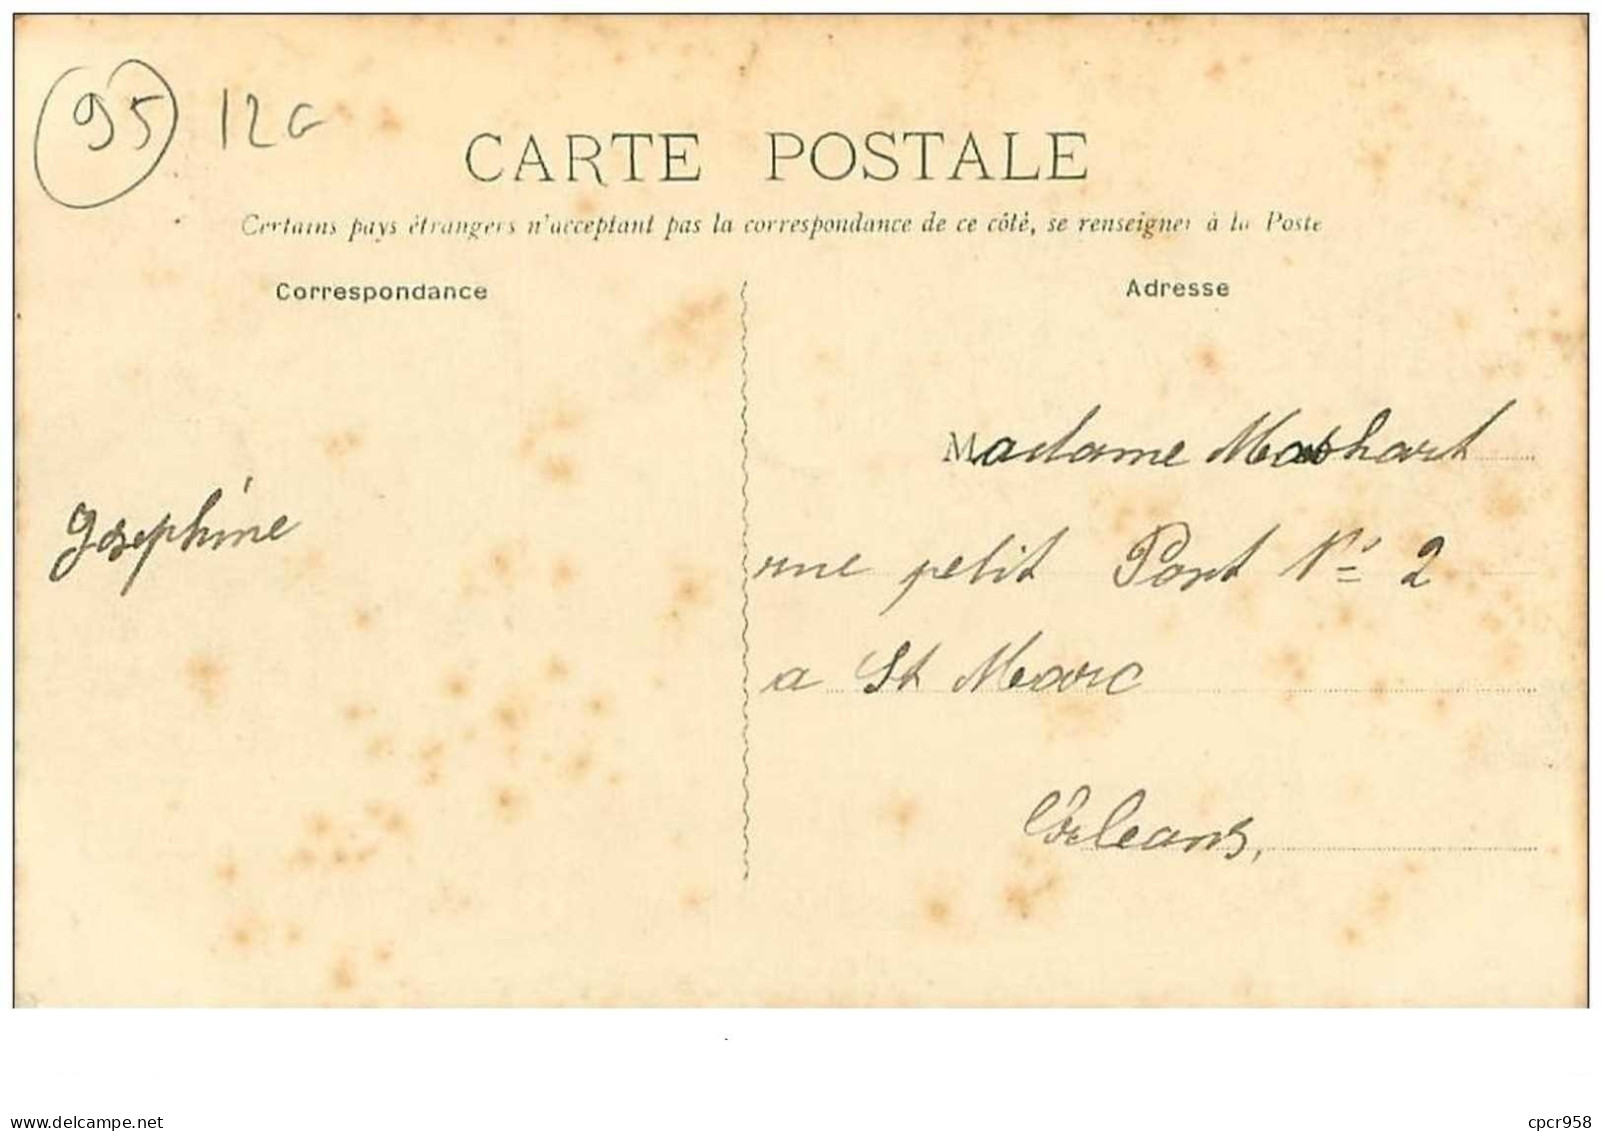 95 12G
CARTE POSTALE
Certains pays étrangers n'acceptant pas la correspondance de ce côté, se renseigner à la Poste
Correspondance
Adresse
Madame
Josephine
rue petit Pont N° 2
a St Marc
Orleans,
www.delcampe.net
cpcr958